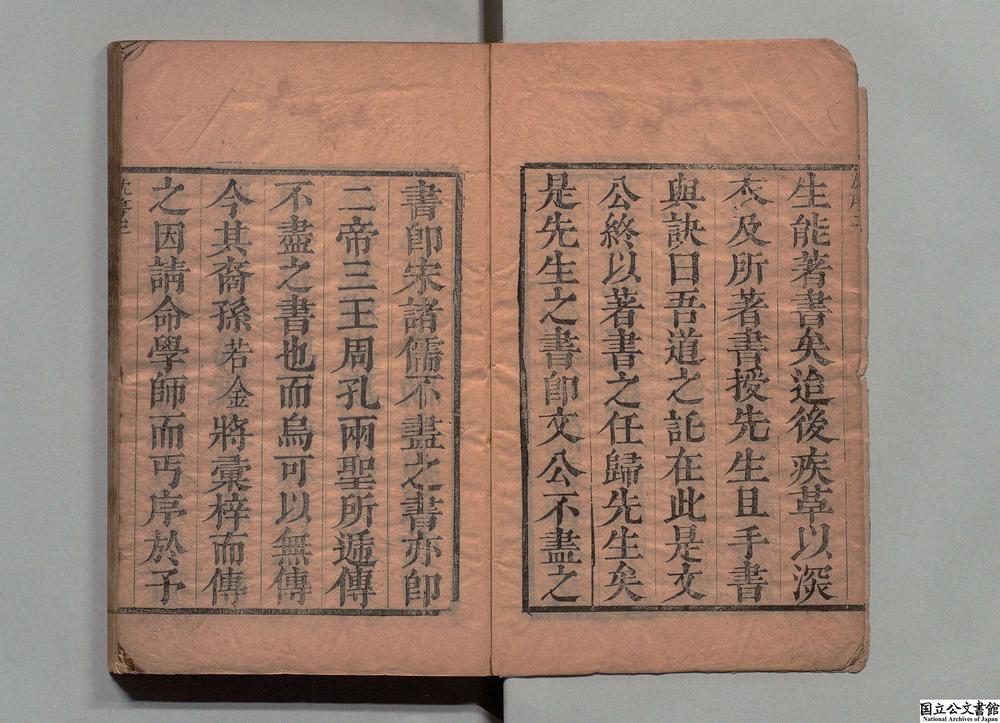 生能著書矣迨後疾革以深
衣及所著書授先生且手書
與訣曰吾道之託在此是文
公終以著書之任歸先生矣
是先生之書即文公不盡之
書即宋諸儒不盡之書亦即
二帝三王周孔兩聖所遞傳
不盡之書也而烏可以無傳
今其裔孫若金將彙梓而傳
之因請命學師而丐序於予
国立公文書館
National Archives of Japan